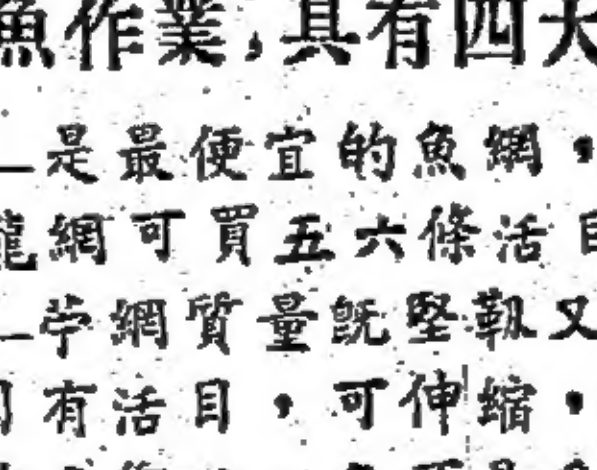 魚作業，具有四大
是最便宜的魚網，
龍網可買五六條活目
苧網質量既堅韌又
有活目，可伸縮，